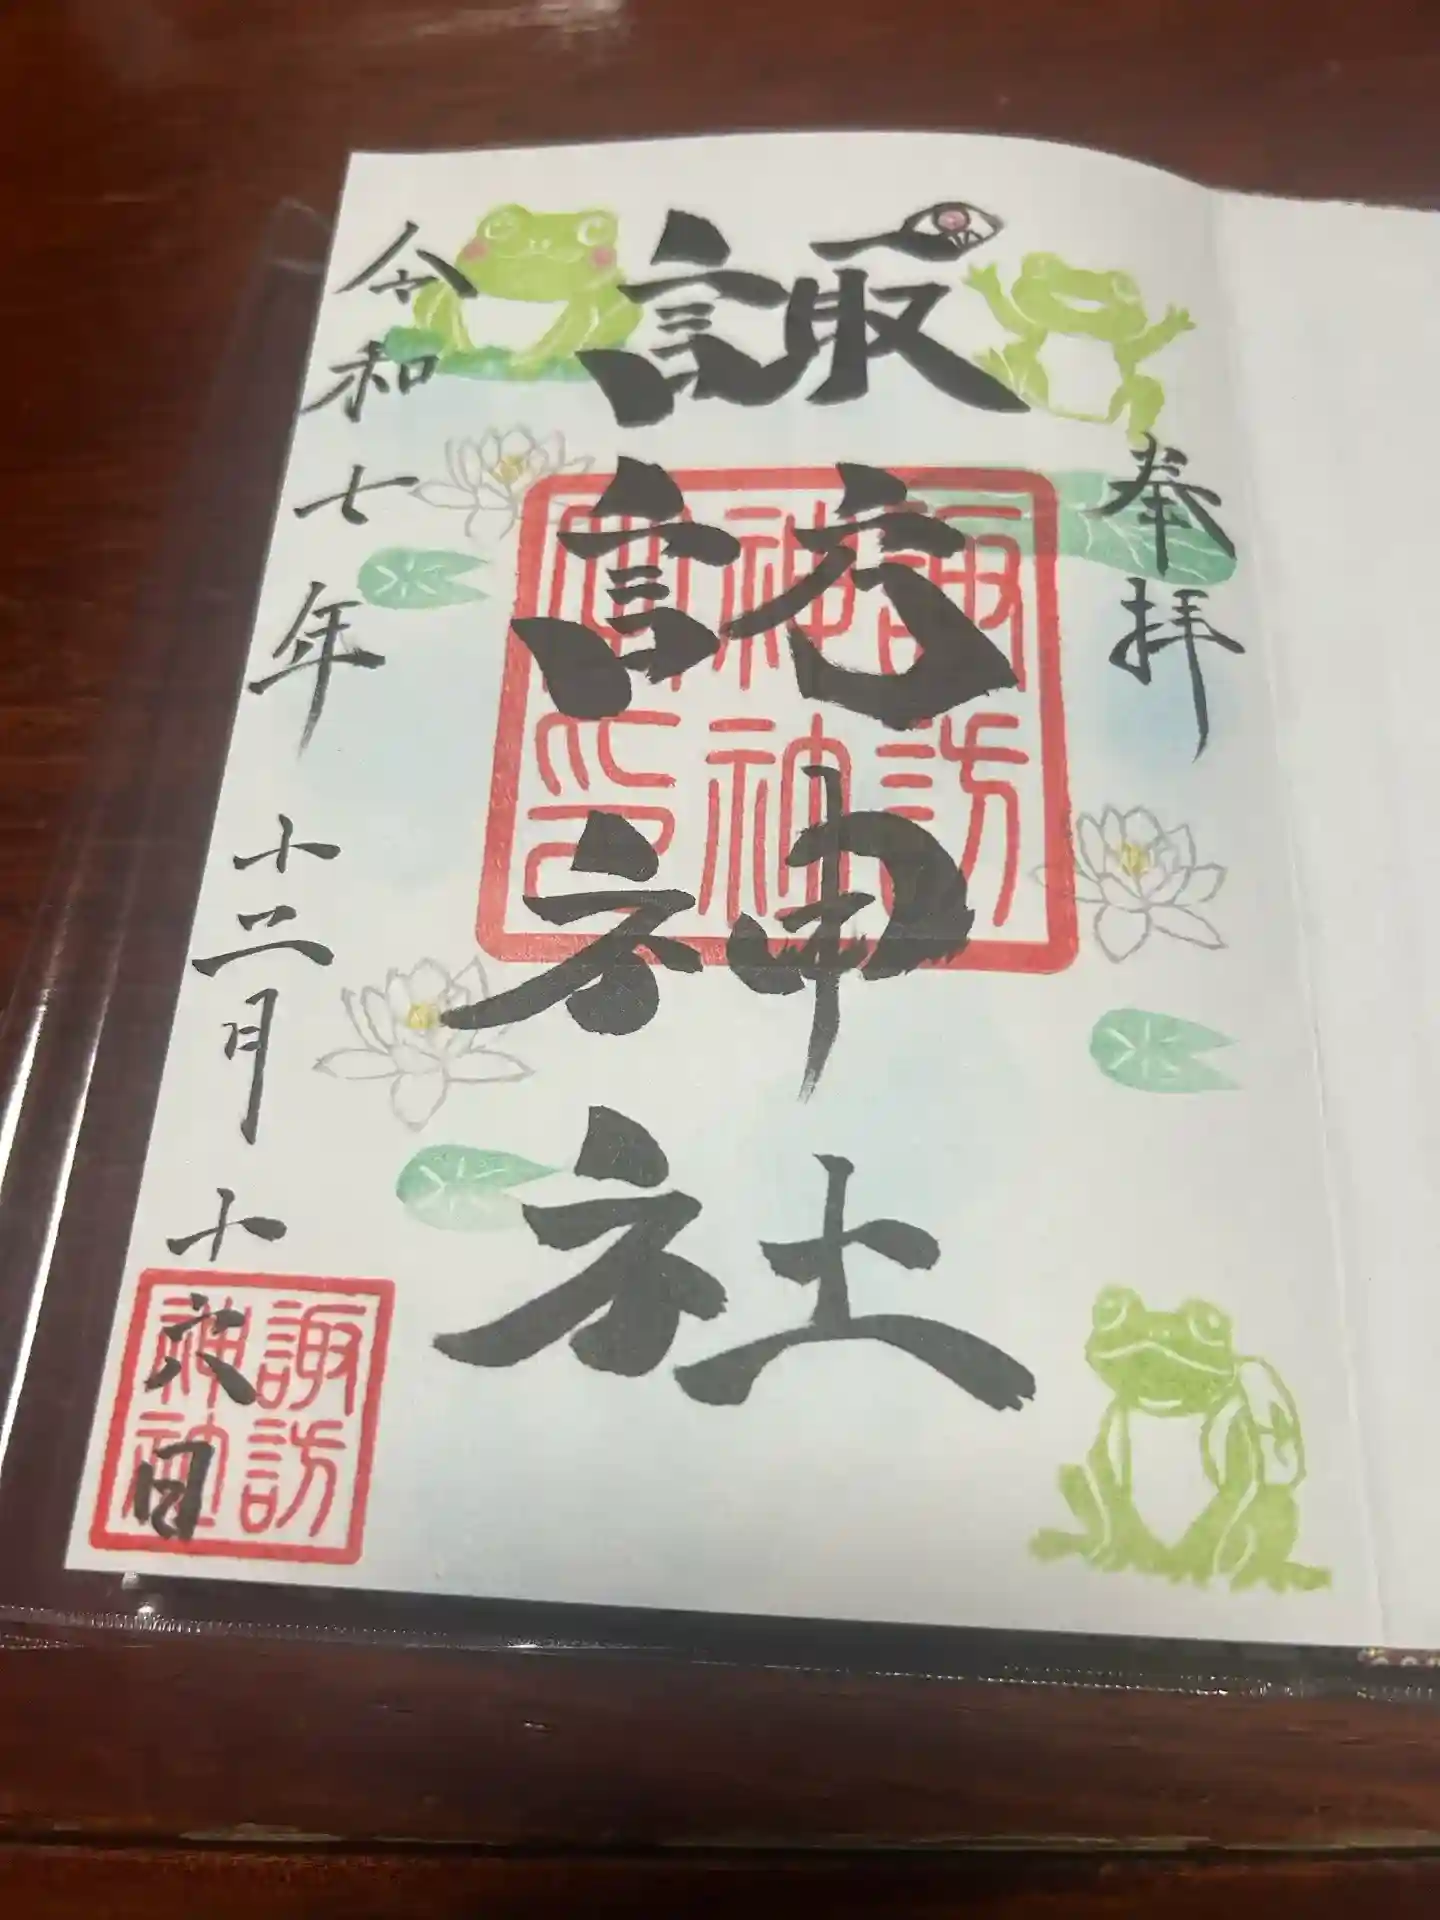 奉拝
諏訪神社
諏訪
神社
令和七年 十二月 十六日
諏訪
神社